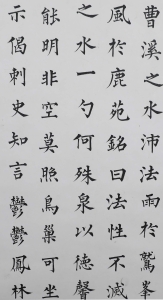 曹溪之水沛法雨於鷲峯
風於鹿苑銘曰法性不滅
之水一勺何殊泉以德馨
能明非空莫照鳥巢可坐
示偈刺史知言鬱鬱鳳林